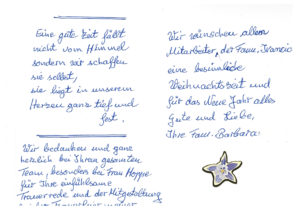 Eine gute Zeit fällt
nicht vom Himmel
sondern wir schaffen
sie selbst,
sie liegt in unserem
Herzen ganz tief und
fest.
Wir bedanken und ganz
herzlich bei Ihrem gesamten
Team, besonders bei Frau Hoppe
für Ihre einfühlsame
Trauerrede und der Mitgestaltung
Wir wünschen allen
Mitarbeiter, der Fam.
eine besinnliche
Weihnachtszeit und
für das Neue Jahr alles
Gute und Liebe,
Ihre Fam. Barbara